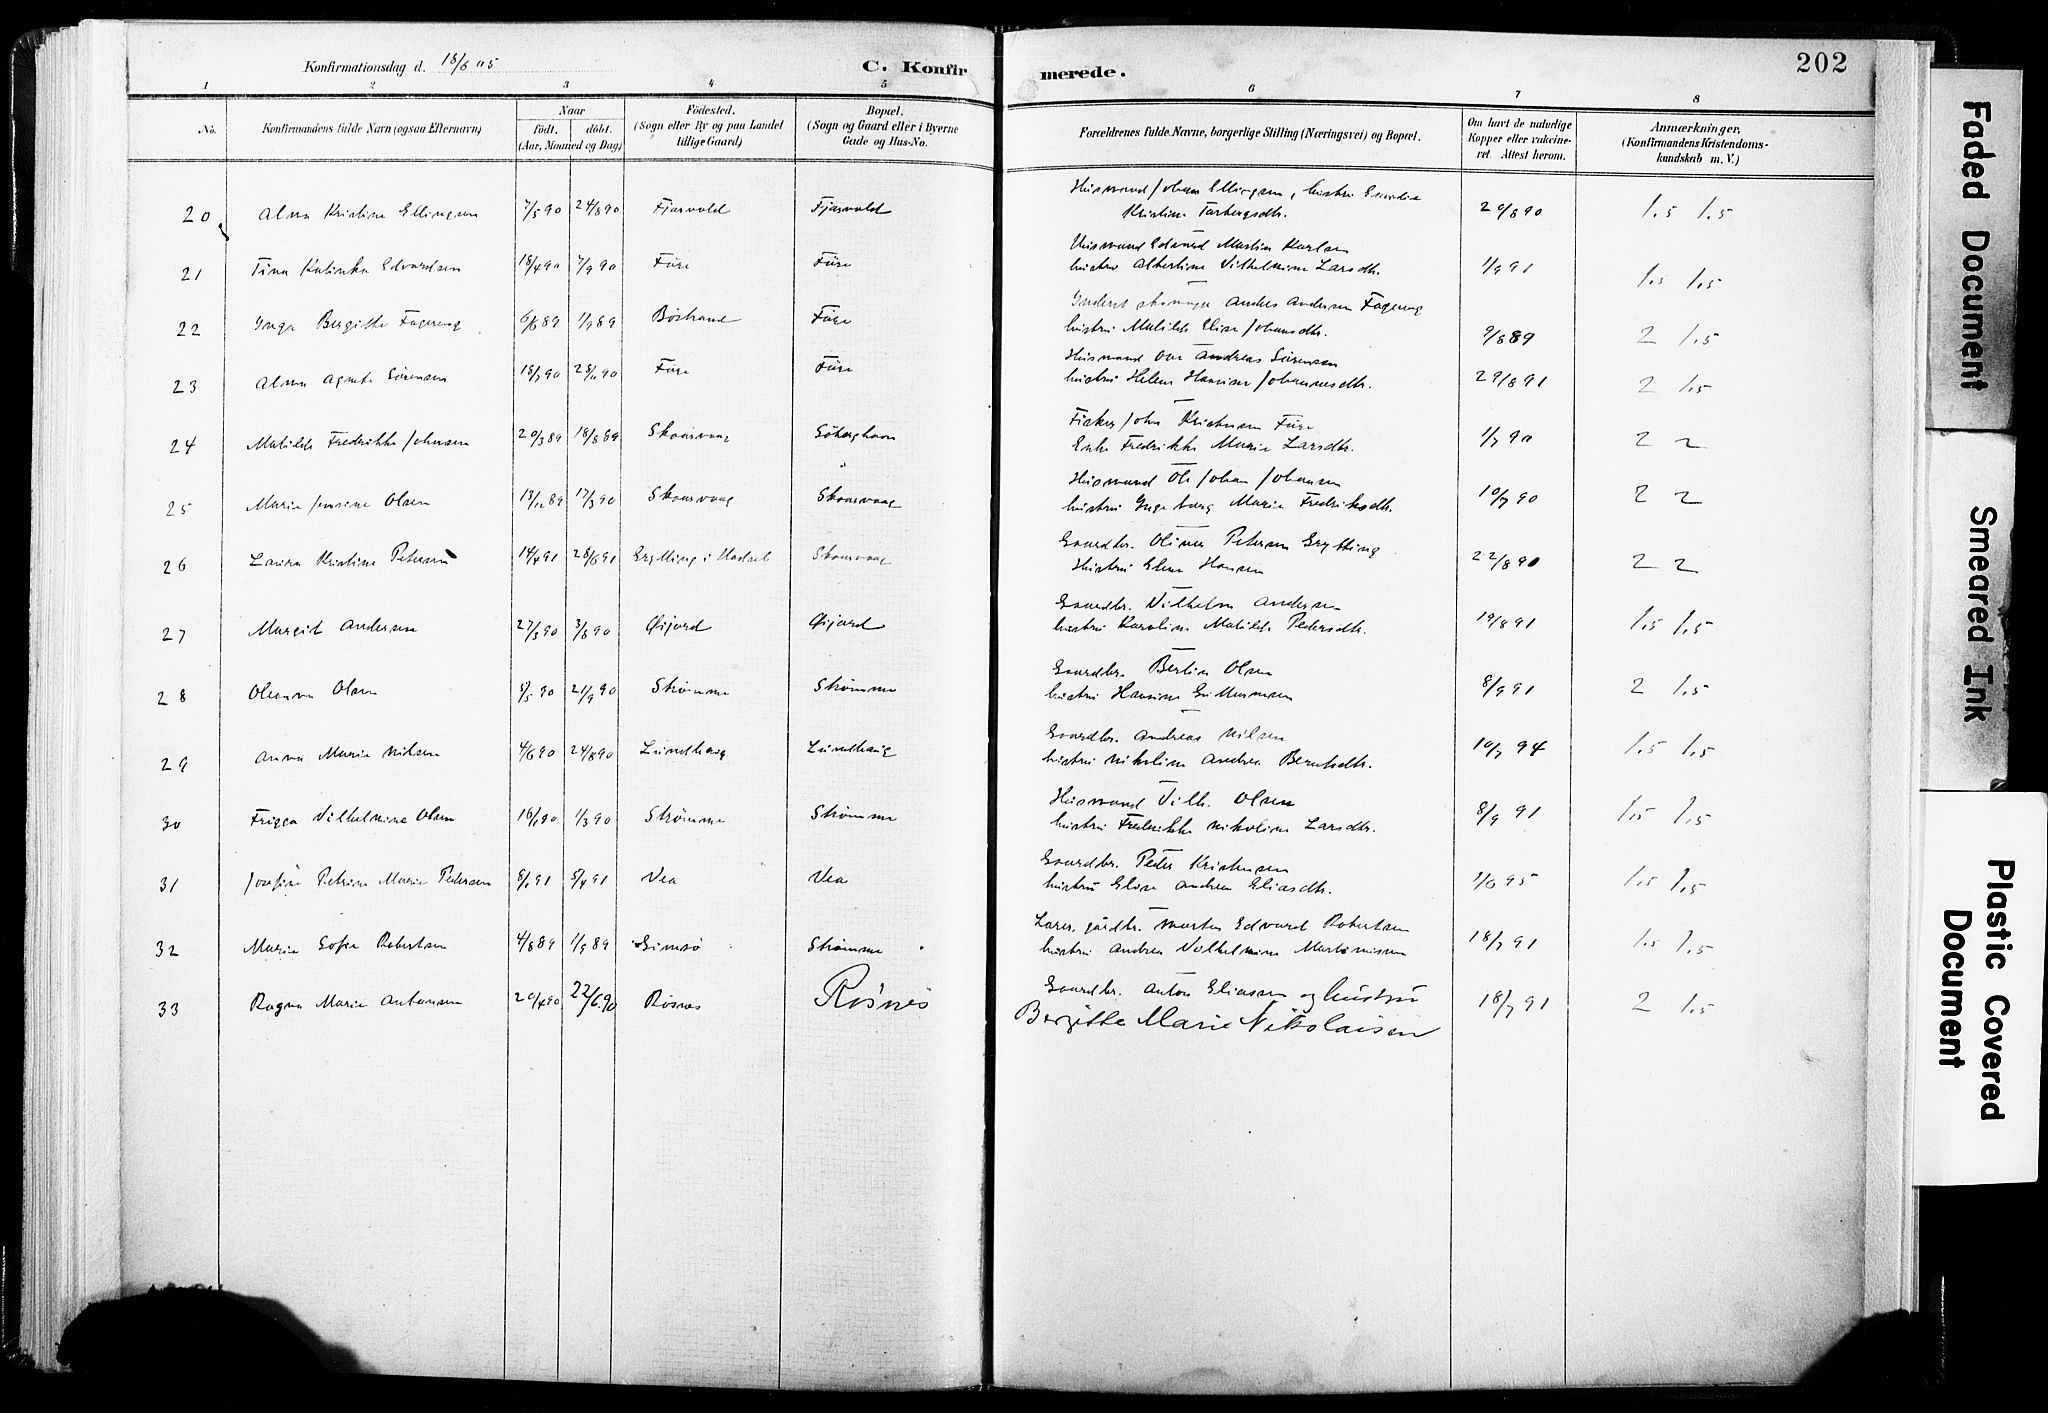 Konfirmationsdag d. 18/6 05
C. Konfirmerede.
202
1 2 3 4 5 6 7 8
No.
Konfirmandens fulde Navn (ogsaa Efternavn)
Naar
födt. döbt.
(Aar, Maaned og Dag)
Födested.
(Sogn eller By og paa Landet
tillige Gaard)
Bopæl.
(Sogn og Gaard eller i Byerne
Gade og Hus-No.
Forældrenes fulde Navne, borgerlige Stilling (Næringsvei) og Bopæl.
Om havt de naturlige
Kopper eller vakcine-
ret. Attest herom.
Anmærkninger,
(Konfirmandens Kristendoms-
kundskab m. V.)
20 Alma Kristine Ellingsen 7/5 90 24/8 90 Fjærvold Fjærvold Husmand Johan Ellingsen, hustru
Kristine Torbergsdtr. 20/8 90 1,5 1,5
21 Tina Katinka Edvardsen 18/4 90 7/9 90 Füre Füre Husmand Edvard Martin Karlsen
hustru Albertine Vilhelmine Larsdtr. 1/9 91 1,5 1,5
22 Inga Bergitte Fagereng 6/6 89 1/9 89 Böstrand Füre Anders Andersen Fagereng
hustru Matilde Elise Johansdtr. 9/8 89 2 1,5
23 Alma Agnete Sörensen 18/7 90 28/11 90 Füre Füre Husmand Ole Andreas Sörensen
hustru Helene Hansine Johannesdtr. 29/8 91 2 1,5
24 Matilde Fredrikke Johnsen 20/3 89 18/8 89 Skaarvaag Fisker John Kristensen Füre
Enke Fredrikke Marie Larsdtr. 1/7 90 2 2
25 Marie Jensine Olsen 13/12 89 17/3 90 Skaarvaag Skaarvaag Husmand Ole Johan Johansen
hustru Ingeborg Marie Fredriksdtr. 10/7 90 2 2
26 Laura Kristine Petersen 14/4 91 28/6 91 Grytting i Hadsel Skaarvaag Gaardbr. Oliver Petersen Grytting
Hustru Elene Hansen 22/8 90 2 2
27 Margit Andersen 27/3 90 3/8 90 Øijord Øijord Gaardbr. Vilhelm Andersen
hustru Karoline Matilde Pedersdtr. 19/8 91 1,5 1,5
28 Oleanna Olsen 5/5 90 21/9 90 Strömme Strömme Gaardbr. Bertin Olsen
hustru Hansine 8/9 91 2 1,5
29 Anna Marie Nilsen 4/6 90 24/8 90 Lundhaug Lundhaug Gaardbr. Andreas Nilsen
hustru Nikoline Andrea Berntsdtr. 10/7 94 1,5 1,5
30 Frigga Vilhelmine Olsen 16/1 90 1/3 90 Strömme Strömme Husmand Vilh. Olsen
hustru Fredrikke Nikoline Larsdtr. 8/9 91 1,5 1,5
31 Josefine Petrine Marie Pedersen 8/1 91 5/4 91 Vea Vea Gaardbr. Peter Kristensen
hustru Elise Andrea Eliasdtr. 1/6 95 1,5 1,5
32 Marie Sofie Robertsen 4/8 89 1/9 89 Gimsö Strömme Morten Edvard Robertsen
hustru Andrea Vilhelmine Martinussen 18/7 91 1,5 1,5
33 Ragna Marie Antonsen 20/4 90 22/6 90 Rösnes Rösnes Gaardbr. Anton Eliassen og hustru
Bergitte Marie Nikolaisen 18/7 91 2 1,5
Faded Document
Smeared Ink
Plastic Covered
Document